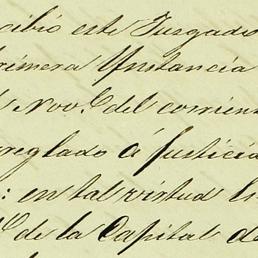 cibió este Juzgado
rimera Ynstancia
Nov.e del corrien
reglado á justicia
: en tal virtud
de la Capital de